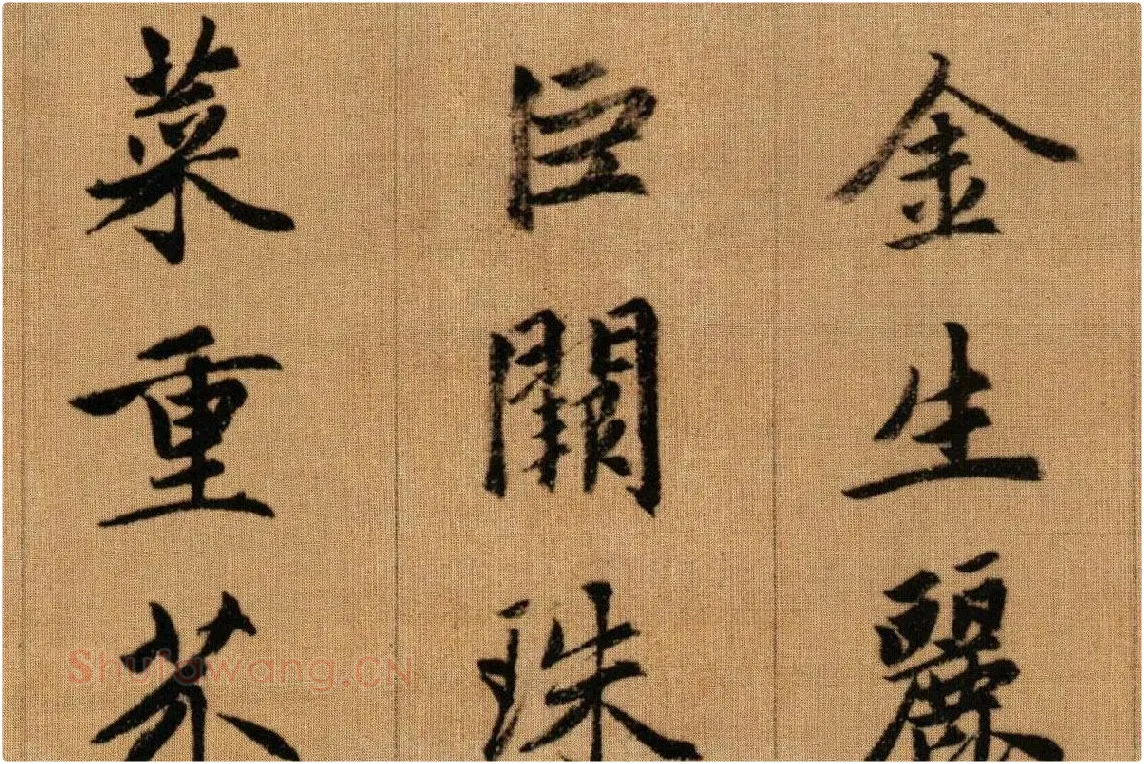 金生麗
巨闕珠
菜重芥
Shufawang.CN